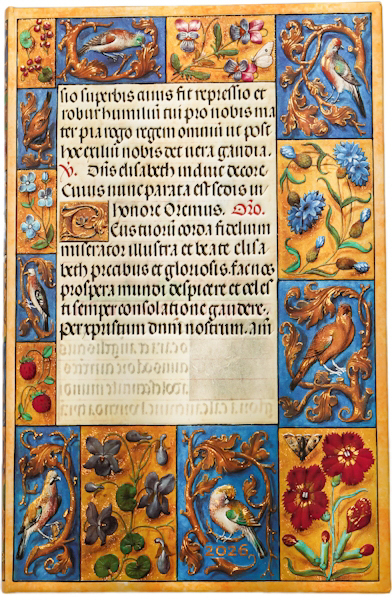 sio superbis cuius fit repressio et
robur humiliū tui pro nobis ma
ter pia rogo regem omniū ut post
hoc exiliū nobis det vera gaudia.
V. Dn̄s elisabeth induc decore.
Cuius nunc parata est sedis in
honore Oremus. Oro.
Deus tuorū corda fidelium
miserator illustra et beate elisa
beth precibus et gloriosis fac nos
prospera mundi despicere et celes
ti semper consolatione gaudere.
Per xp̄istum dnm̄ nostrum. Am̄
2026